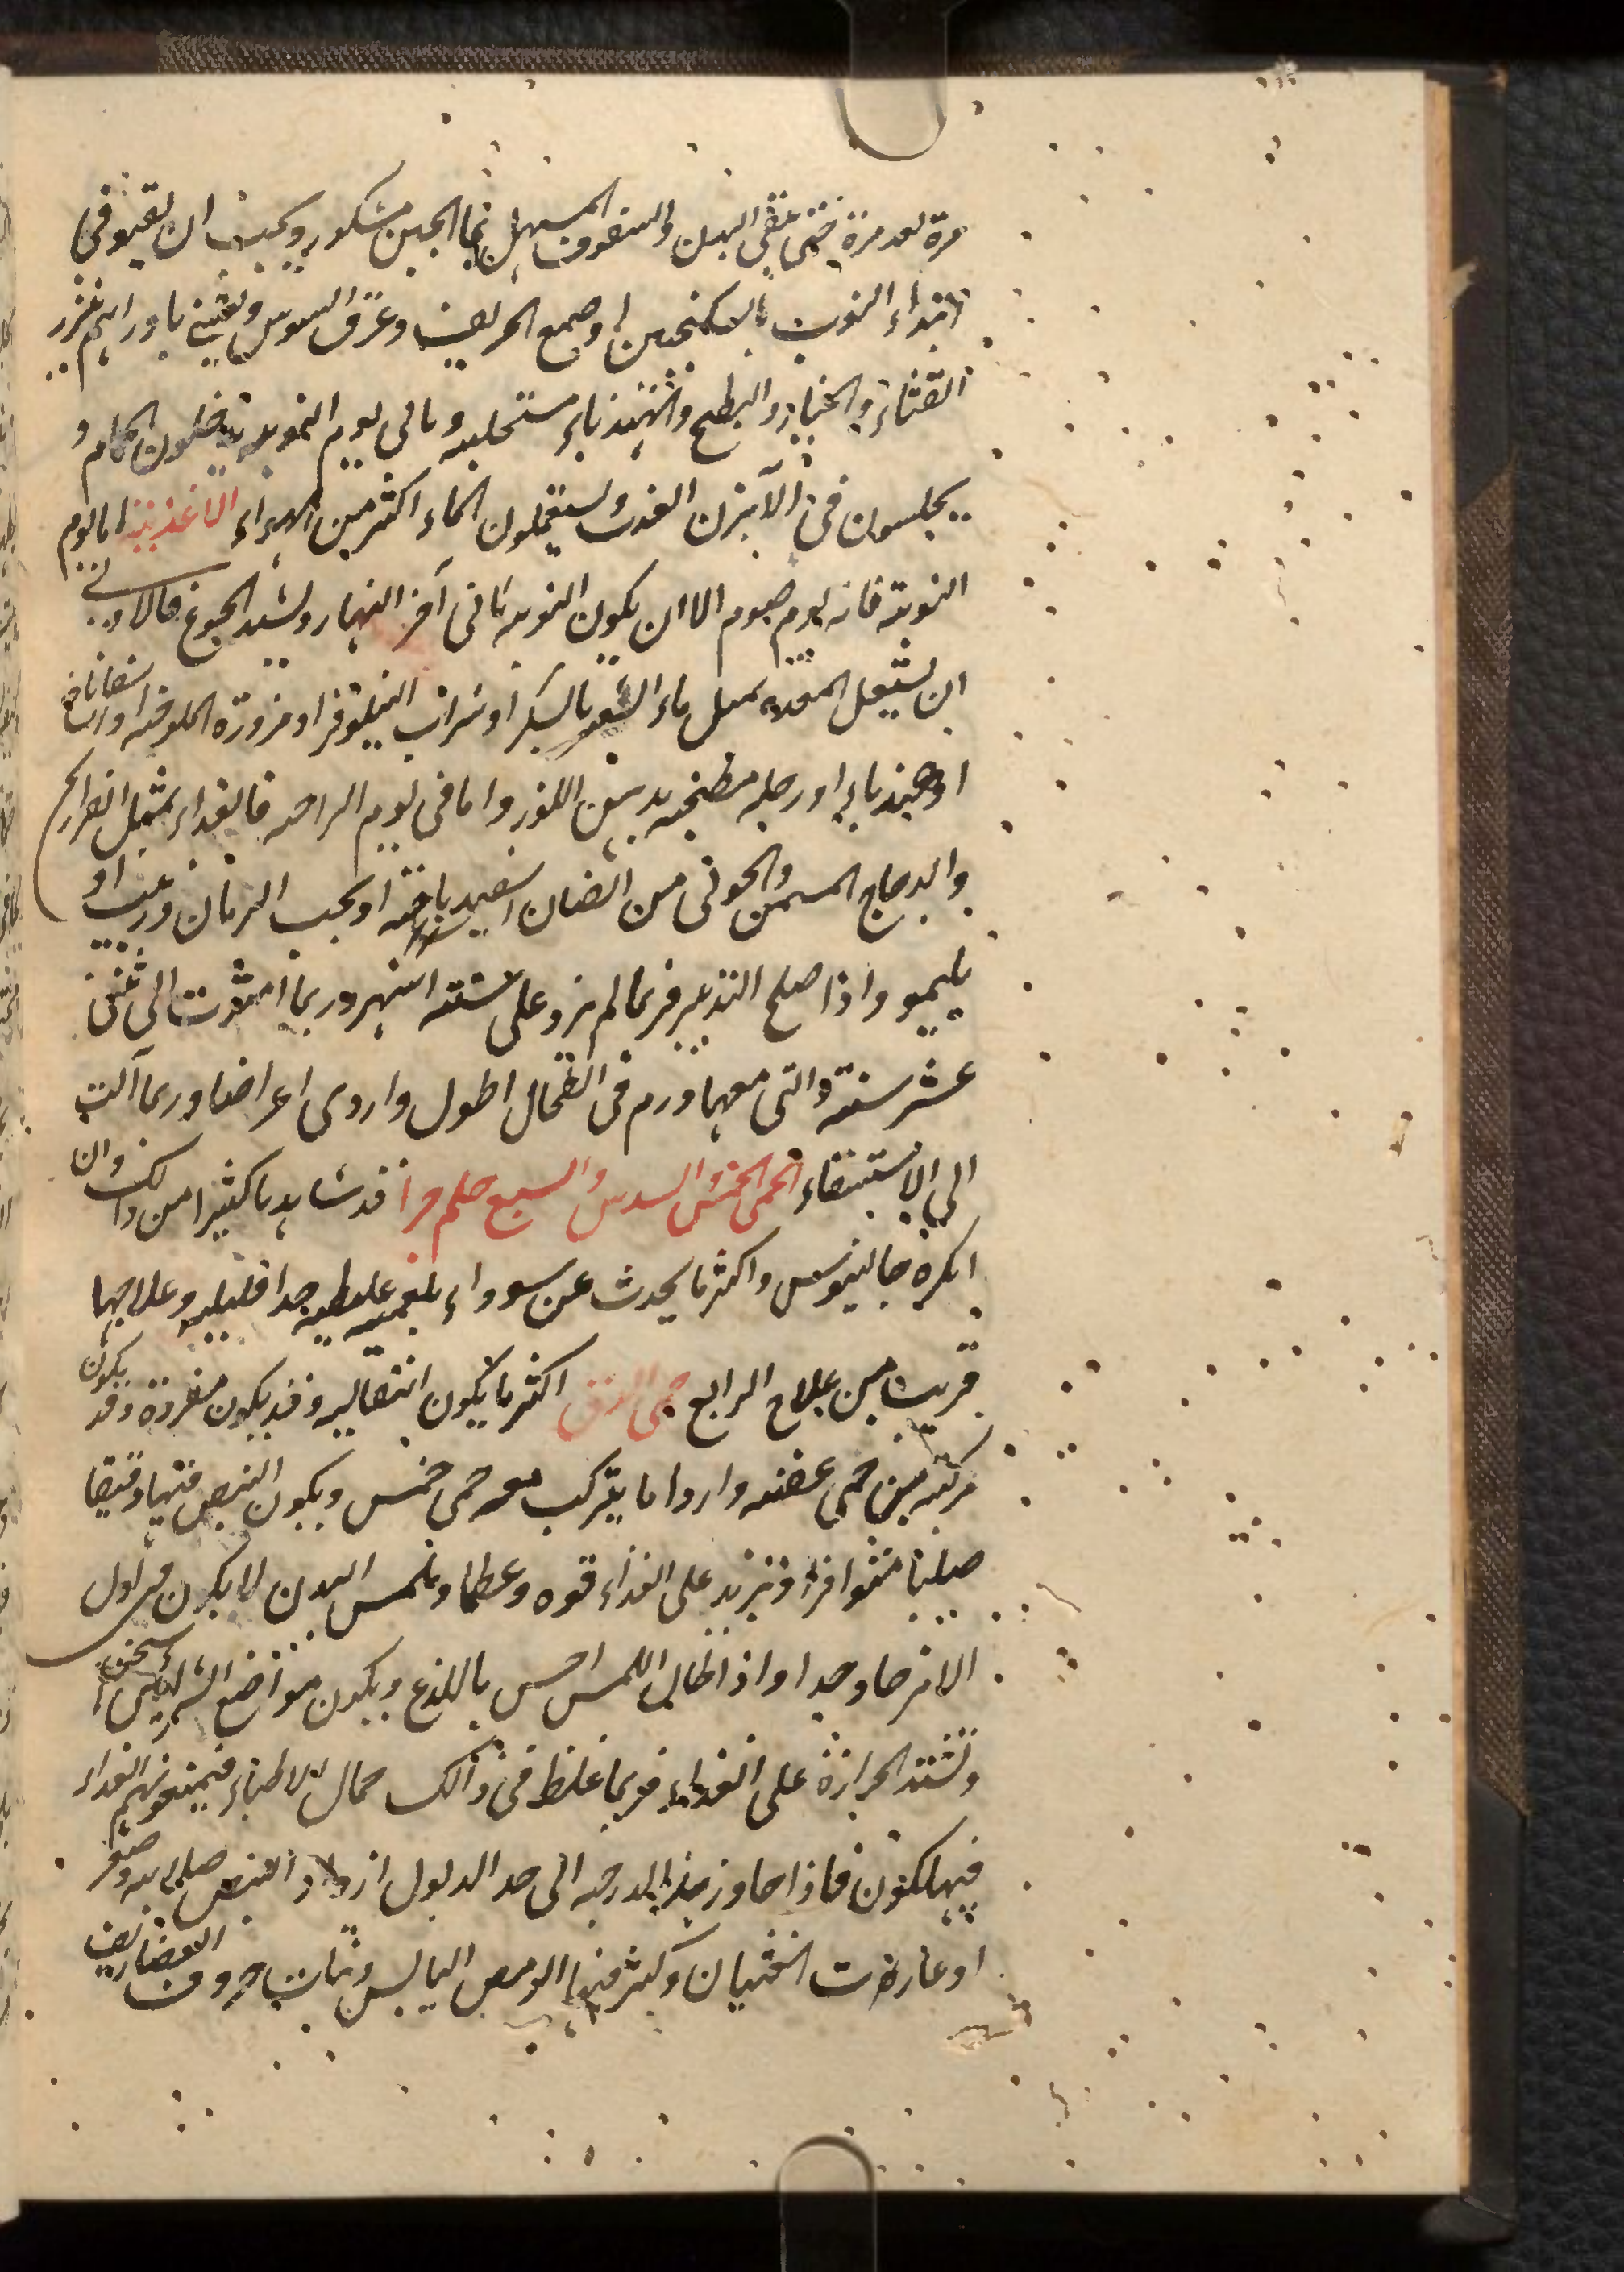 مرة بعد مرة حتى ينقى البدن والسفوف المسهل بماء الجبن مشكور ويجب ان يقيئوا في
ابتداء النوب بالسكنجبين او صمغ الحريف وعرق السوس ويعتنى بادرارهم ببزر
القثاء والخيار والبطيخ والهندباء مستحلبه وتالي يوم النوبه يدخلون الحمام و
يجلسون في الآبزن العذب ويستعملون الماء اكثر من الهواء الاغذية اما يوم
النوبة فانه يوم صوم الا ان يكون النوبه تاتي آخر النهار ويشتد الجوع فالاولى
ان يستعمل المعده بمثل ماء الشعير بالسكر او شراب النيلوفر او مزورة الملوخيه او اسفاناخ
او هندباء او رجله مطجنه بدهن اللوز واما في يوم الراحه فالغذاء بمثل الفراريج
والدجاج المسمن والحولي من الضان اسفيدباجه او بحب الرمان وزبيب او
بليمو واذا صلح التدبير فربما لم يزد على ستة اشهر وربما امتدت الى اثنى
عشر سنة والتي معها ورم في الطحال اطول واردى اعراضا وربما آلت
الى الاستسقاء الحمى الخمس والسدس والسبع وهلم جرا قد شاهدنا كثيرا من ذلك وان
انكره جالينوس واكثر ما يحدث عن سوداء بلغميه غليظه جدا قليله وعلاجها
قريب من علاج الرابع حمى الدق اكثر ما يكون انتقاليه وقد يكون مفردة وقد يكون
مركبه مع حمى عفنه واردا ما يتركب معه حمى خمس ويكون النبض فيها دقيقا
صلبا متواترا وتزيد على الغذاء قوه وعظما وملمس البدن لا يكون في اول
الامر حادا جدا واذا طال اللمس احس باللذع ويكون مواضع الشرايين اسخن
وتشتد الحرارة على الغذاء فربما غلط في ذالك جهال الاطباء فيمنعونهم الغذاء
فيهلكون فاذا جاوز هذا الدرجه الى حد الذبول ازداد النبض صلابه وصغر
او غارت العينان وكثر فيها الرمص اليابس ونتات حروف الغضاريف